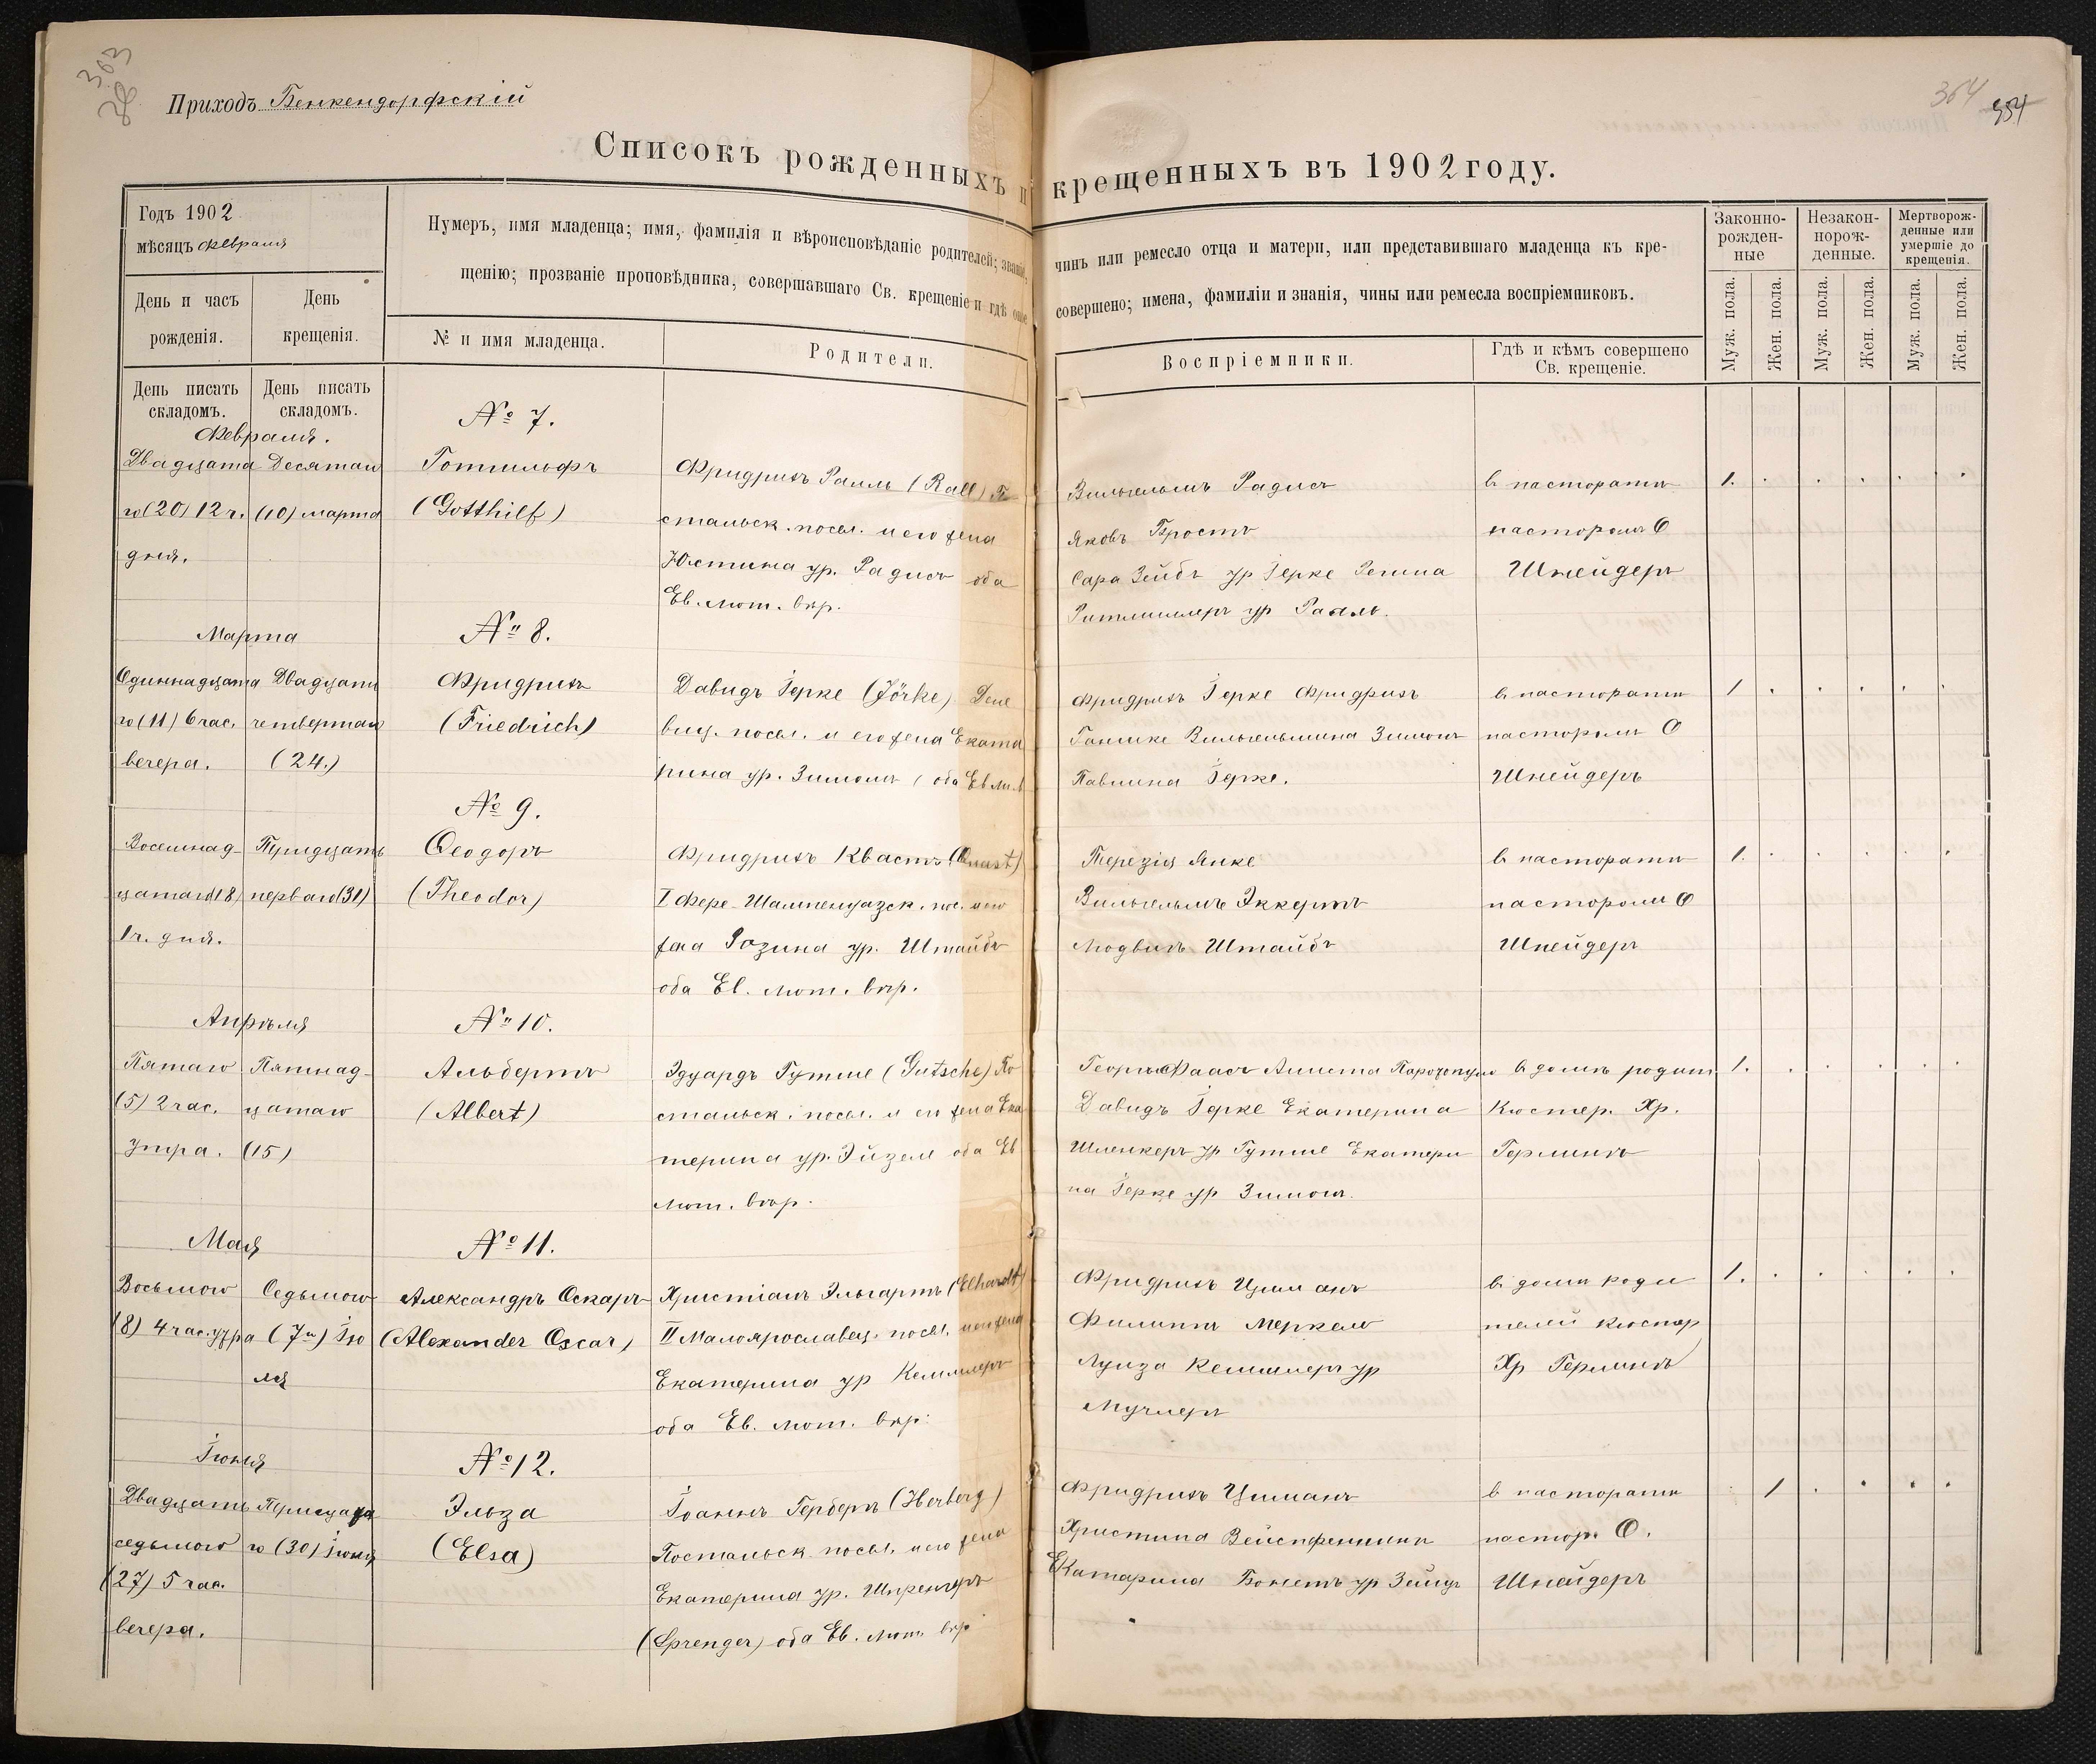 363
Приходъ Бенкендорфскій
364
354
Списокъ рожденныхъ и крещенныхъ въ 1902 году.
Годъ 1902
мѣсяцъ февраля
Нумеръ, имя младенца; имя, фамилія и вѣроисповѣданіе родителей; званіе, чинъ или ремесло отца и матери, или представившаго младенца къ кре-
щенію; прозваніе проповѣдника, совершавшаго Св. крещеніе и гдѣ оное совершено; имена, фамиліи и знанія, чины или ремесла воспріемниковъ.
Законно-
рожден-
ные
Незакон-
норож-
денные.
Мертворож-
денные или
умершіе до
крещенія.
День и часъ
рожденія.
День
крещенія.
№ и имя младенца.
Родители.
Воспріемники.
Гдѣ и кѣмъ совершено
Св. крещеніе.
Муж. пола.
Жен. пола.
Муж. пола.
Жен. пола.
Муж. пола.
Жен. пола.
День писать
складомъ.
День писать
складомъ.
Февраля.
№ 7.
Двадцата Десятаго Готгильфъ Фридрихъ Ралль (Rall) По Вильгельмъ Радисъ в пасторатѣ 1.
го (20) 12 ч. (10) марта (Gotthilf) стальск. посел. и его жена Яковъ Простъ пасторомъ О
дня. Юстина ур. Радисъ оба Сара Зейбъ ур Іерке Шнейдеръ
Ев. лют. вѣр. ур Раалъ.
Марта
№ 8.
Одиннадцата Двадцать Фридрихъ Давидъ Іерке (Jörke) Дене Фридрихъ Іерке Фридрихъ в пасторатѣ 1
го (11) 6 час. четвертаго (Friedrich) виц. посел. и его жена Екате Вильгельмина Зимонъ пасторомъ О
вечера. (24.) рина ур. Зимонъ оба Ев. лют. в Павлина Іерке. Шнейдеръ
№ 9.
Восемнад- Тридцать Ѳеодоръ Фридрихъ Квастъ (Quast) Терезія Янке в пасторатѣ 1.
цатаго (18) перваго (31) (Theodor) I Фере-Шампенуазск. пос. и его Вильгельмъ Эккертъ пасторомъ О
1 ч. дня. жена Розина ур. Штайбъ Людвигъ Штайбъ Шнейдеръ
оба Ев. лют. вѣр.
Апрѣля
№ 10.
Пятаго Пятнад- Альбертъ Эдуардъ Гутше (Gutsche) По Георгъ Фаасъ в домѣ родит 1.
(5) 2 час. цатаго (Albert) стальск. посел. и его жена Ека Давидъ Іерке Екатерина Кюстер. Хр.
утра. (15) терина ур. Эйзель оба Ев Шленкеръ ур Гутше Екатери Герлингъ
лют. вѣр. на Іерке ур Зимонъ.
Мая
№ 11.
Восьмого Седьмого Александръ Оскаръ Христіанъ Эльгартъ (Elhardt) Фридрихъ Циманъ в домѣ роди 1.
(8) 4 час. утра (7го) Ію (Alexander Oscar) II Малоярославец. посел. и его жена Филиппъ Меркель телей кюстер
ля Екатерина ур Кеммлеръ Луиза Кеммлеръ ур Хр Герлингъ
оба Ев. лют. вѣр.
Іюня
№ 12.
Двадцать Тридцата Эльза Іоаннъ Герберъ (Herberg) Фридрихъ Циманъ в пасторатѣ 1
седьмого го (30) Іюня (Elsa) Постальск. посел. и его жена Христина пастор. О.
(27) 5 час. Екатерина ур. Шпренгеръ Катарина Бонетъ ур Шнейдеръ
вечера. (Sprenger) оба Ев. лют. вѣр